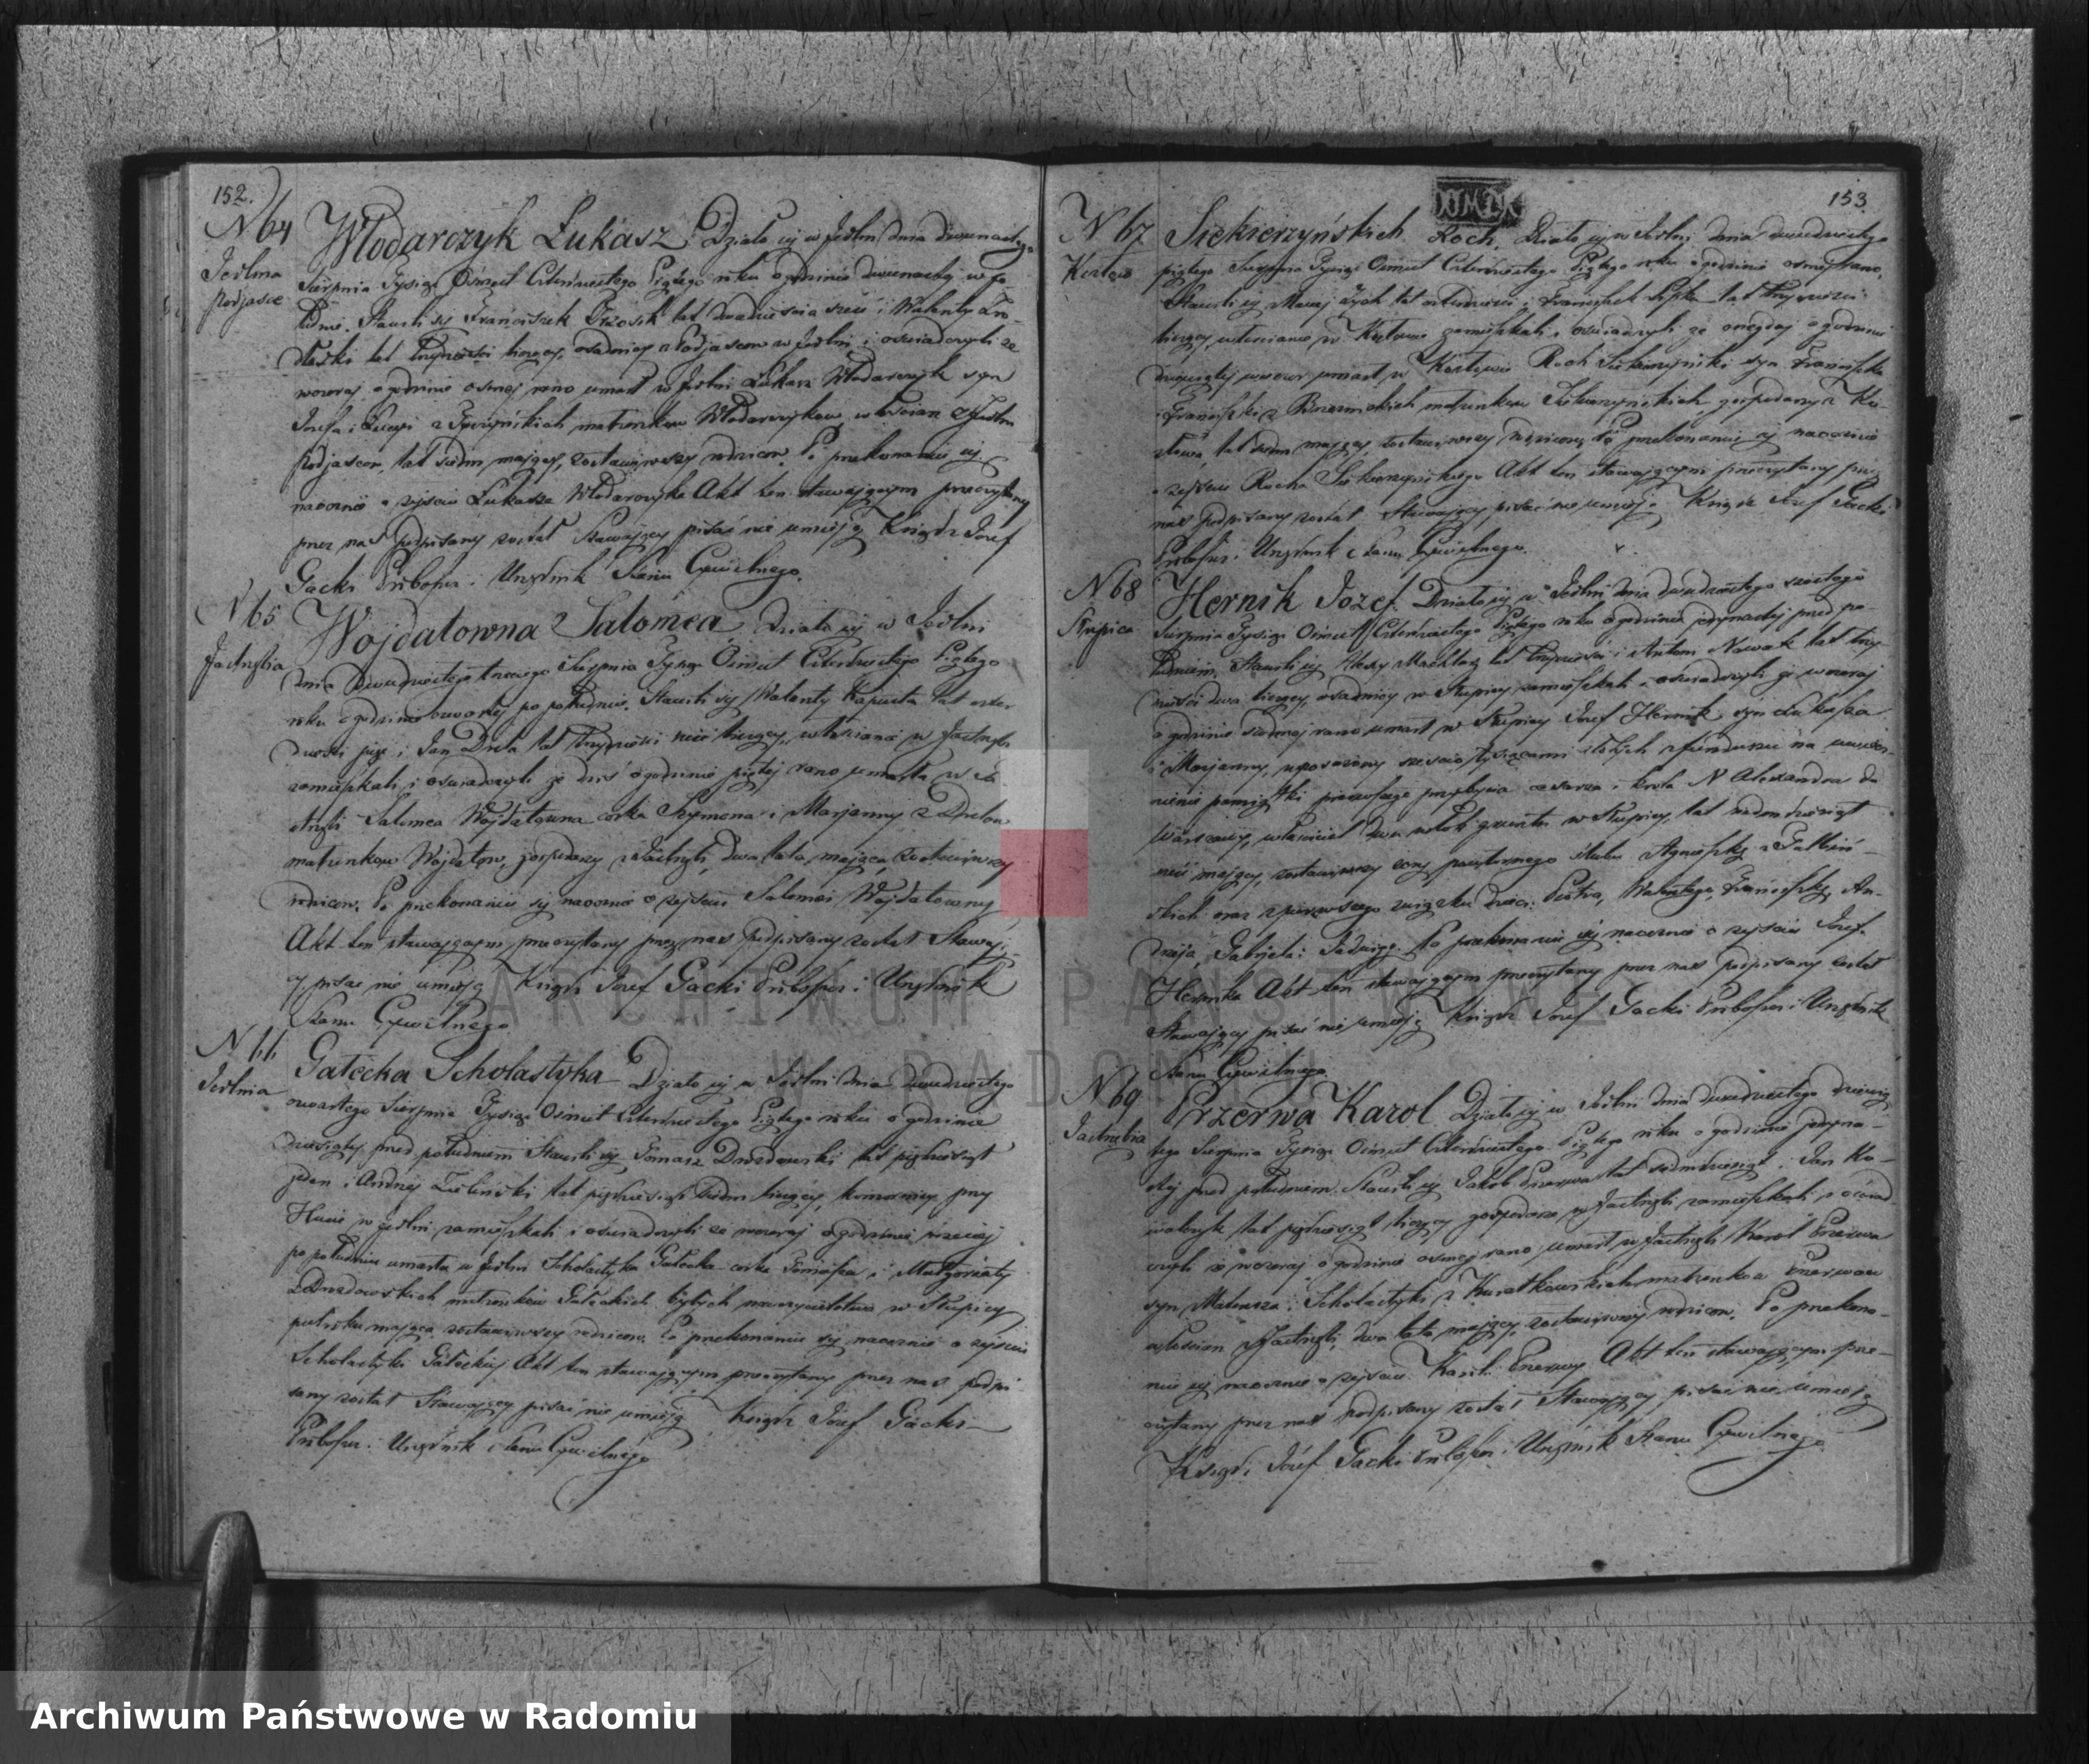 152.
N 64
Jedlnia
podjasce
Włodarczyk Łukasz. Działo się w Jedlni dnia dwunastego
Sierpnia Tysiąc Ośmset Czterdziestego Piątego roku o godzinie dwunastej w po-
łudnie. Stawili się Franciszek Brzosik lat dwadzieścia sześć i Walenty
lat trzydzieści liczący, osadnicy z Podjasców w Jedlni i oświadczyli że
wczoraj o godzinie osmej rano umarł w Jedlni Łukasz Włodarczyk syn
Józefa i Łucyi z małżonków Włodarczyków, włościan z Jedlni
Podjasców, lat siedm mający, zostawiwszy rodziców. Po przekonaniu się
naocznie o zejściu Łukasza Włodarczyka Akt ten stawającym przeczytany
przez nas podpisany został Stawający pisać nie umieją Ksiądz Józef
Gacki Proboszcz i Urzędnik Stanu Cywilnego.
N 65
Jastrzębia
Wojdatowna Salomea Działo się w Jedlni
dnia Dwudziestego trzeciego Sierpnia Tysiąc Ośmset Czterdziestego Piątego
roku o godzinie czwartej po południu. Stawili się Walenty Kapusta lat czter-
dzieści pięć i Jan Drela lat trzydzieści sześć liczący, włościanie w Jastrzębi
zamieszkali i oświadczyli że dziś o godzinie piątej rano umarła w Ja-
strzębi Salomea Wojdatowna córka Szymona i Marjanny z Drelów
małżonków Wojdatów, gospodarzy z Jastrzębi, dwa lata mająca, zostawiwszy
rodziców. Po przekonaniu się naocznie o zejściu Salomei Wojdatowny
Akt ten stawającym przeczytany przez nas podpisany został Stawają-
cy pisać nie umieją Ksiądz Józef Gacki Proboszcz i Urzędnik
Stanu Cywilnego
N 66
Jedlnia
Gałecka Scholastyka Działo się w Jedlni dnia dwudziestego
czwartego Sierpnia Tysiąc Ośmset Czterdziestego Piątego roku o godzinie
dziesiątej przed południem Stawili się Tomasz Drozdowski lat pięćdziesiąt
jeden i Andrzej Zieliński lat pięćdziesiąt siedm liczący, komornicy przy
Hucie w Jedlni zamieszkali i oświadczyli że wczoraj o godzinie trzeciej
po południu umarła w Jedlni Scholastyka Gałecka córka Tomasza i Małgorzaty
z Drozdowskich małżonków Gałeckich byłych w Słupicy
pół roku mająca zostawiwszy rodziców. Po przekonaniu się naocznie o zejściu
Scholastyki Gałeckiej Akt ten stawającym przeczytany przez nas podpi-
sany został Stawający pisać nie umieją Ksiądz Józef Gacki
Proboszcz i Urzędnik Stanu Cywilnego
153
N 67
Kozłów
Siekierzyńskich Roch. Działo się w Jedlni dnia dwudziestego
piątego Sierpnia Tysiąc Ośmset Czterdziestego Piątego roku o godzinie osmej rano.
Stawili się Maciej Zych lat czterdzieści i Franciszek Lipka lat trzydzieści
liczący włościanie w Kozłowie zamieszkali i oświadczyli że onegdaj o godzinie
dziesiątej wieczór umarł w Kozłowie Roch Siekierzyński syn Franciszka
i Franciszki z małżonków Siekierzyńskich gospodarzy z Ko-
złowa, lat siedm mający, zostawiwszy rodziców. Po przekonaniu się naocznie
o zejściu Rocha Siekierzyńskiego Akt ten stawającym przeczytany przez
nas podpisany został. Stawający pisać nie umieją. Ksiądz Józef Gacki
Proboszcz i Urzędnik Stanu Cywilnego.
N 68
Słupica
Hernik Jozef. Działo się w Jedlni dnia dwudziestego szóstego
Sierpnia Tysiąc Ośmset Czterdziestego Piątego roku o godzinie jedynastej przed po-
łudniem. Stawili się lat trzydzieści i Antoni Nowak lat trzy-
dzieści dwa liczący, osadnicy w Słupicy zamieszkali i oświadczyli że wczoraj
o godzinie siódmej rano umarł w Słupicy Józef Hernik syn Łukasza
i Marjanny, uposażony sześciu tysiącami złotych z funduszu na uwiecz-
nienie pamiątki pierwszego przybycia cesarza i króla N Alexandra do
Warszawy, właściciel dwu włók gruntu w Słupicy, lat siedmdziesiąt
sześć mający, zostawiwszy żonę powtórnego ślubu Agnieszkę z
skich oraz z pierwszego związku dzieci: Piotra, Walentego, Franciszkę, An-
drzeja, Gabryela i Jadwigę. Po przekonaniu się naocznie o zejściu Józefa
Hernika Akt ten stawającym przeczytany przez nas podpisany został
Stawający pisać nie umieją Ksiądz Józef Gacki Proboszcz i Urzędnik
Stanu Cywilnego.
N 69
Jastrzębia
Przerwa Karol Działo się w Jedlni dnia dwudziestego dziewią-
tego Sierpnia Tysiąc Ośmset Czterdziestego Piątego roku o godzinie jedyna-
stej przed południem. Stawili się Jakób Przerwa lat siedmdziesiąt i Jan Ko-
walczyk lat pięćdziesiąt liczący gospodarze w Jastrzębi zamieszkali i oświad-
czyli że wczoraj o godzinie osmej rano umarł w Jastrzębi Karol Przerwa
syn Mateusza i Scholastyki z Kwiatkowskich małżonków Przerwów
włościan z Jastrzębi, dwa lata mający, zostawiwszy rodziców. Po przekona-
niu się naocznie o zejściu Karola Przerwy Akt ten stawającym prze-
czytany przez nas podpisany został Stawający pisać nie umieją
Ksiądz Józef Gacki Proboszcz i Urzędnik Stanu Cywilnego
ARCHIWUM PAŃSTWOWE
W RADOMIU
Archiwum Państwowe w Radomiu